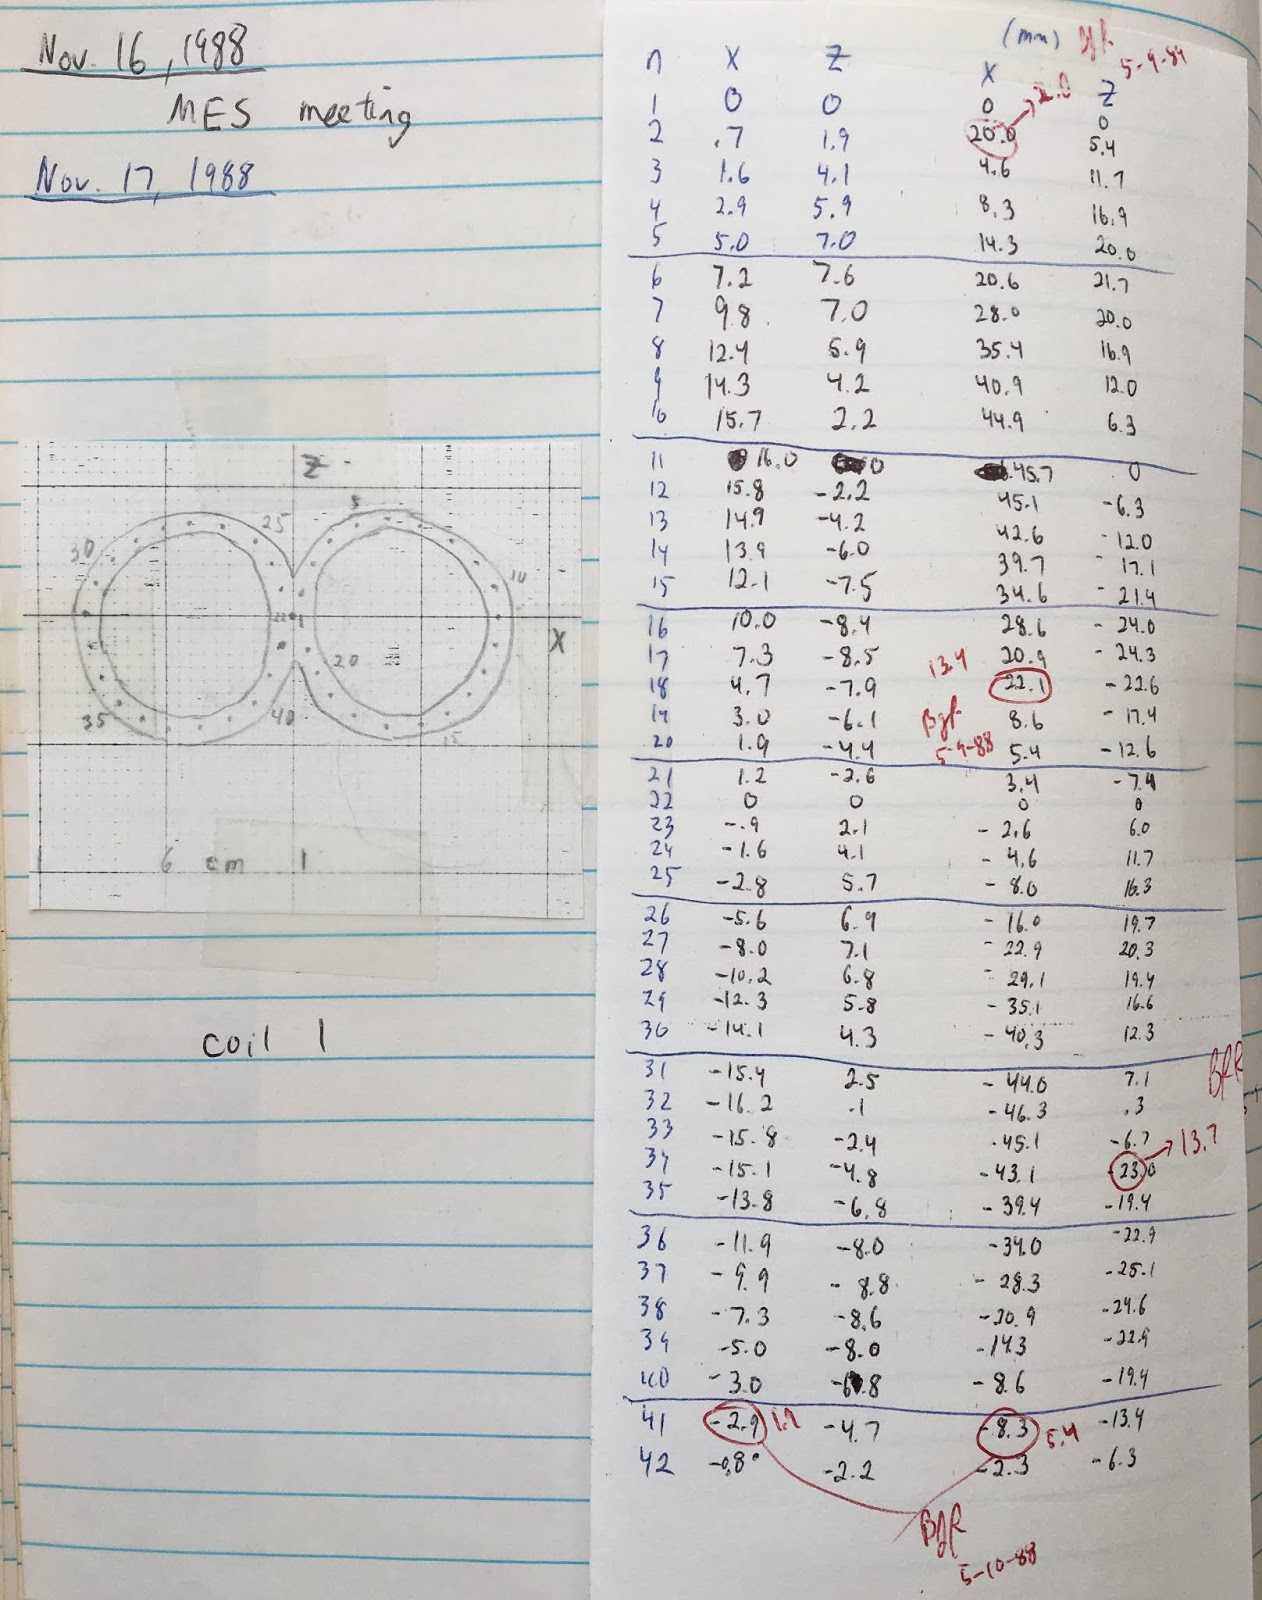 Nov. 16, 1988
MES meeting
Nov. 17, 1988
Z
5
25
30
10
22 1
X
20
35
40
15
6 cm 1
coil 1
(mm) BJR
5-9-89
n X Z X Z
1 0 0 0 0
2 .7 1.9 20.0 → 2.0 5.4
3 1.6 4.1 4.6 11.7
4 2.9 5.9 8.3 16.9
5 5.0 7.0 14.3 20.0
6 7.2 7.6 20.6 21.7
7 9.8 7.0 28.0 20.0
8 12.4 5.9 35.4 16.9
9 14.3 4.2 40.9 12.0
10 15.7 2.2 44.9 6.3
11 16.0 0 45.7 0
12 15.8 -2.2 45.1 -6.3
13 14.9 -4.2 42.6 -12.0
14 13.9 -6.0 39.7 -17.1
15 12.1 -7.5 34.6 -21.4
16 10.0 -8.4 28.6 -24.0
17 7.3 -8.5 20.9 -24.3
18 4.7 -7.9 13.4 22.1 -22.6
19 3.0 -6.1 BJR 8.6 -17.4
20 1.9 -4.4 5-9-88 5.4 -12.6
21 1.2 -2.6 3.4 -7.4
22 0 0 0 0
23 -.9 2.1 -2.6 6.0
24 -1.6 4.1 -4.6 11.7
25 -2.8 5.7 -8.0 16.3
26 -5.6 6.9 -16.0 19.7
27 -8.0 7.1 -22.9 20.3
28 -10.2 6.8 -29.1 19.4
29 -12.3 5.8 -35.1 16.6
30 -14.1 4.3 -40.3 12.3
31 -15.4 2.5 -44.0 7.1 BRR
32 -16.2 .1 -46.3 .3
33 -15.8 -2.4 -45.1 -6.7
34 -15.1 -4.8 -43.1 -23.0 → 13.7
35 -13.8 -6.8 -39.4 -19.4
36 -11.9 -8.0 -34.0 -22.9
37 -9.9 -8.8 -28.3 -25.1
38 -7.3 -8.6 -20.9 -24.6
39 -5.0 -8.0 -14.3 -22.9
40 -3.0 -6.8 -8.6 -19.4
41 -2.9 1.9 -4.7 -8.3 5.4 -13.4
42 -0.8 -2.2 -2.3 -6.3
BJR
5-10-88